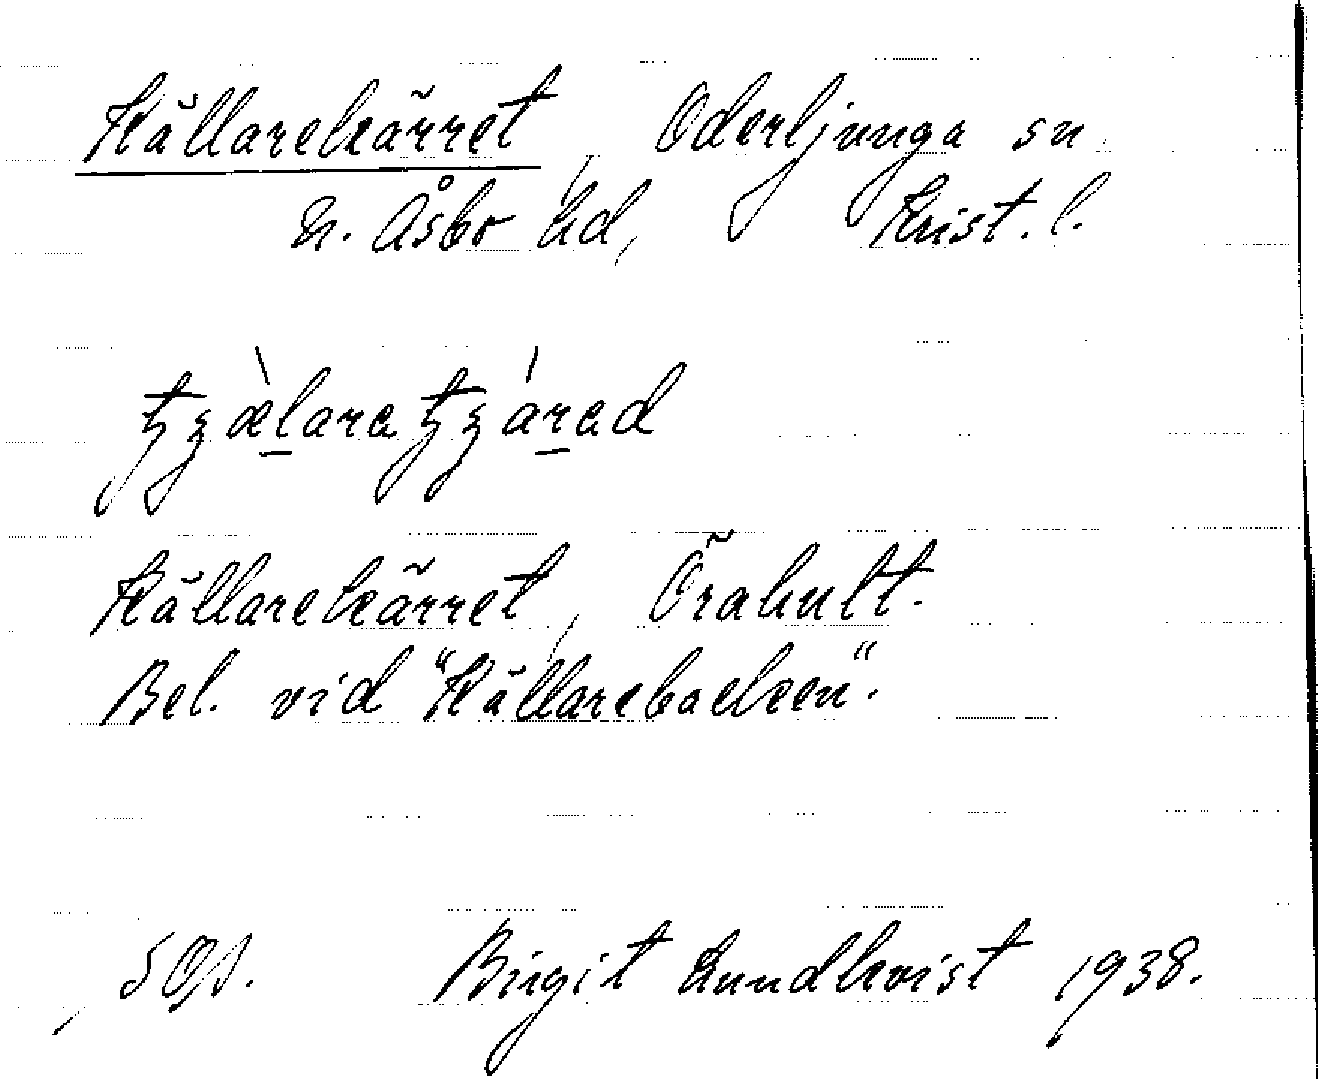 Källarekärret, Oderljunga sn
N. Åsbo hd, Krist. l.
Källarekärret, Örahult.
Bel. vid "Källarebacken".
Birgit Lundkvist 1938.